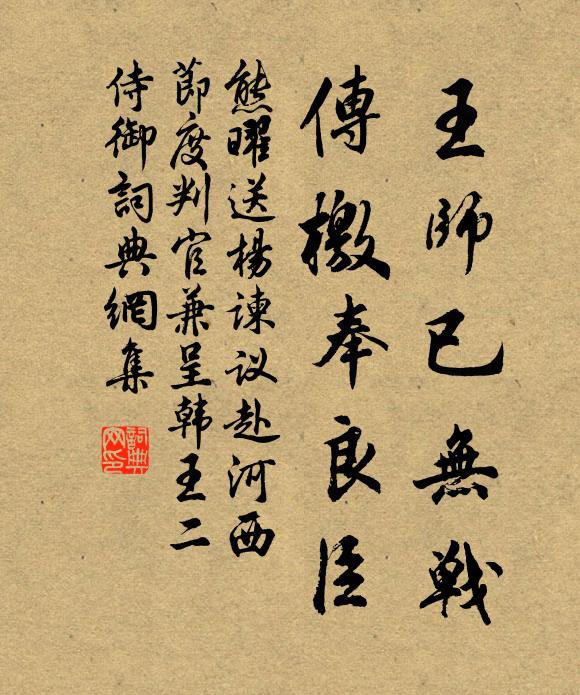 王師已無戰
傳檄奉良臣
熊曜送楊諫议赴河西
節度判官兼呈韩王二
侍御詞典網集
詞典
网印